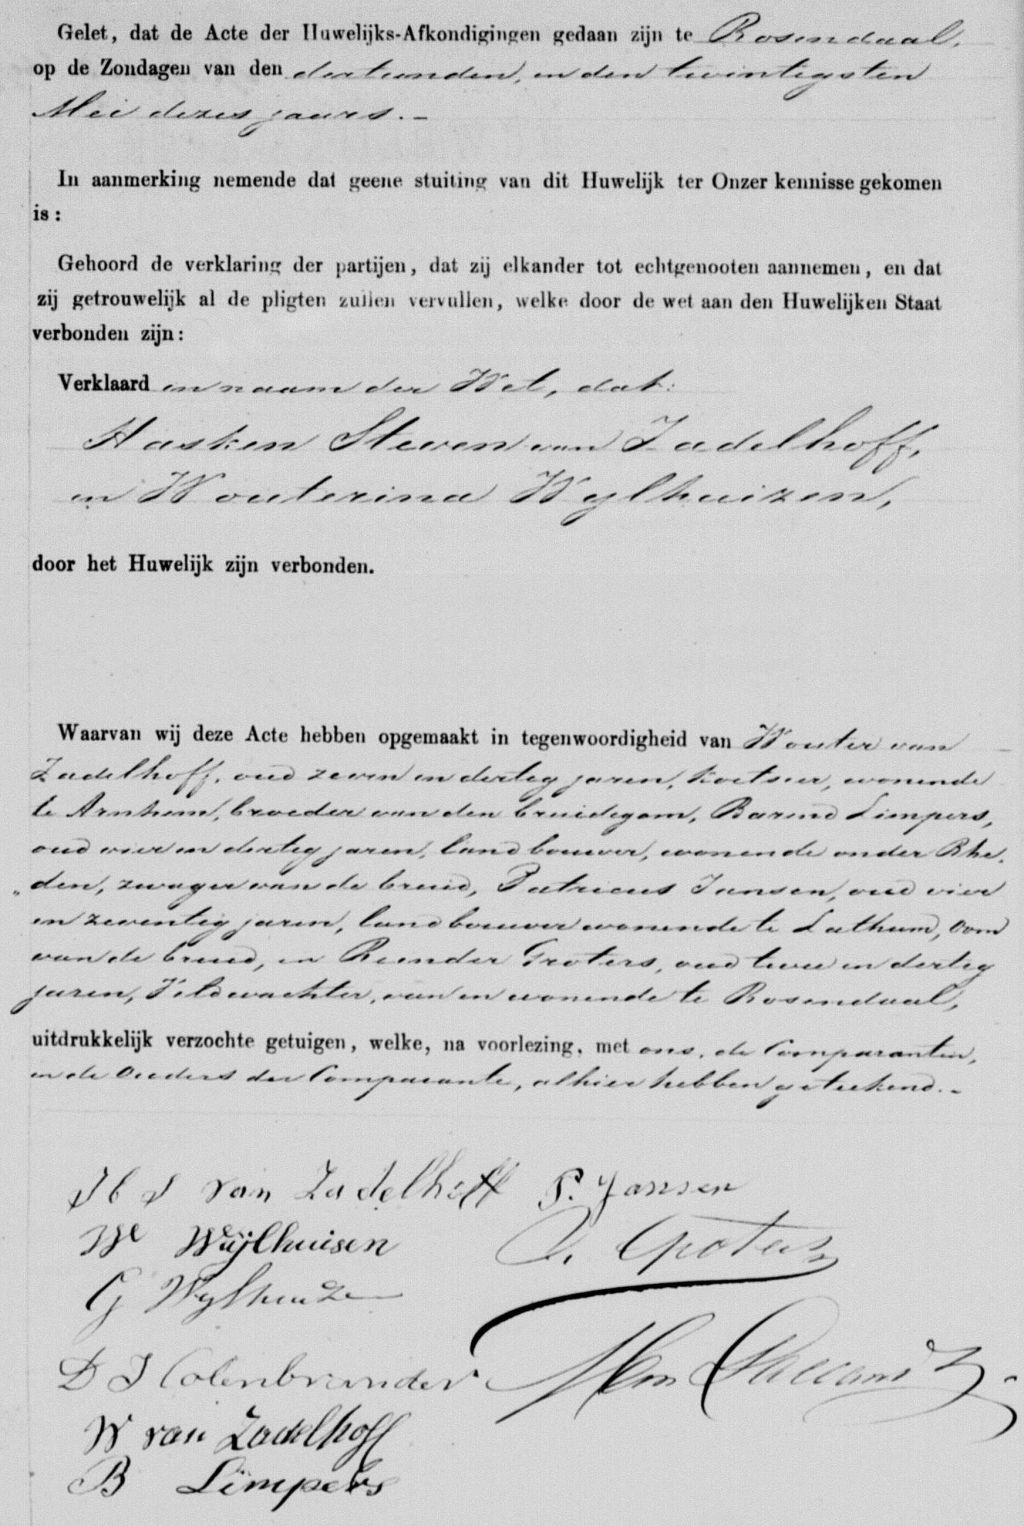 Gelet, dat de Acte der Huwelijks-Afkondigingen gedaan zijn te Rosendaal,
op de Zondagen van den dertienden, en den twintigsten
Mei dezes jaars. -
In aanmerking nemende dat geene stuiting van dit Huwelijk ter Onzer kennisse gekomen
is:
Gehoord de verklaring der partijen, dat zij elkander tot echtgenooten aannemen, en dat
zij getrouwelijk al de pligten zullen vervullen, welke door de wet aan den Huwelijken Staat
verbonden zijn:
Verklaard in naam der Wet, dat:
Hasken Steven van Zadelhoff,
en Wouterina Wylhuizen,
door het Huwelijk zijn verbonden.
Waarvan wij deze Acte hebben opgemaakt in tegenwoordigheid van Wouter van
Zadelhoff, oud zeven en dertig jaren, koetsier, wonende
te Arnhem, broeder van den bruidegom, Barend Limpers,
oud vier en dertig jaren, landbouwer, wonende onder Rhe-
„den, zwager van de bruid, Patricus Jansen, oud vier
en zeventig jaren, landbouwer wonende te Lathum, oom
van de bruid, en Reinder Groters, oud twee en dertig
jaren, Veldwachter, van en wonende te Rosendaal,
uitdrukkelijk verzochte getuigen, welke, na voorlezing, met ons, de Comparanten,
en de Ouders der Comparante, alhier hebben geteekend. -
H S van Zadelhoff P. Jansen
W Wijlhuisen
G Wylhuizen
D J Colenbrander
W van Zadelhoff
B Limpers